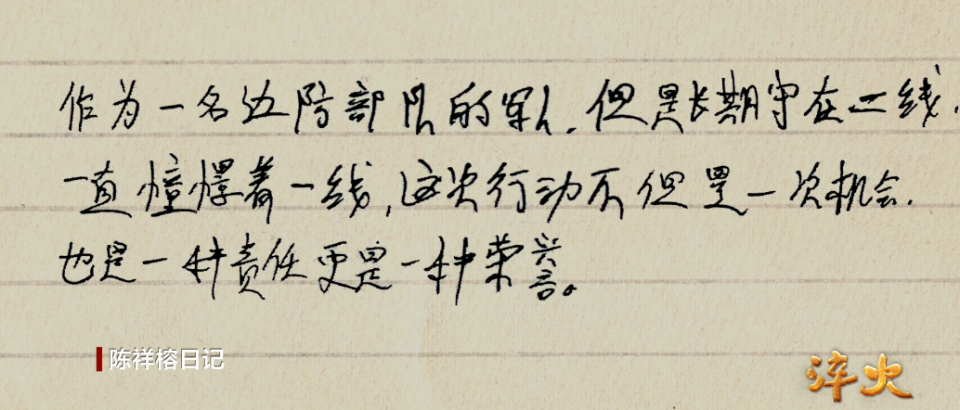 作为一名边防部队的军人，但是长期守在二线，
一直憧憬着一线，这次行动不但是一次机会，
也是一种责任更是一种荣誉。
陈祥榕日记
淬火